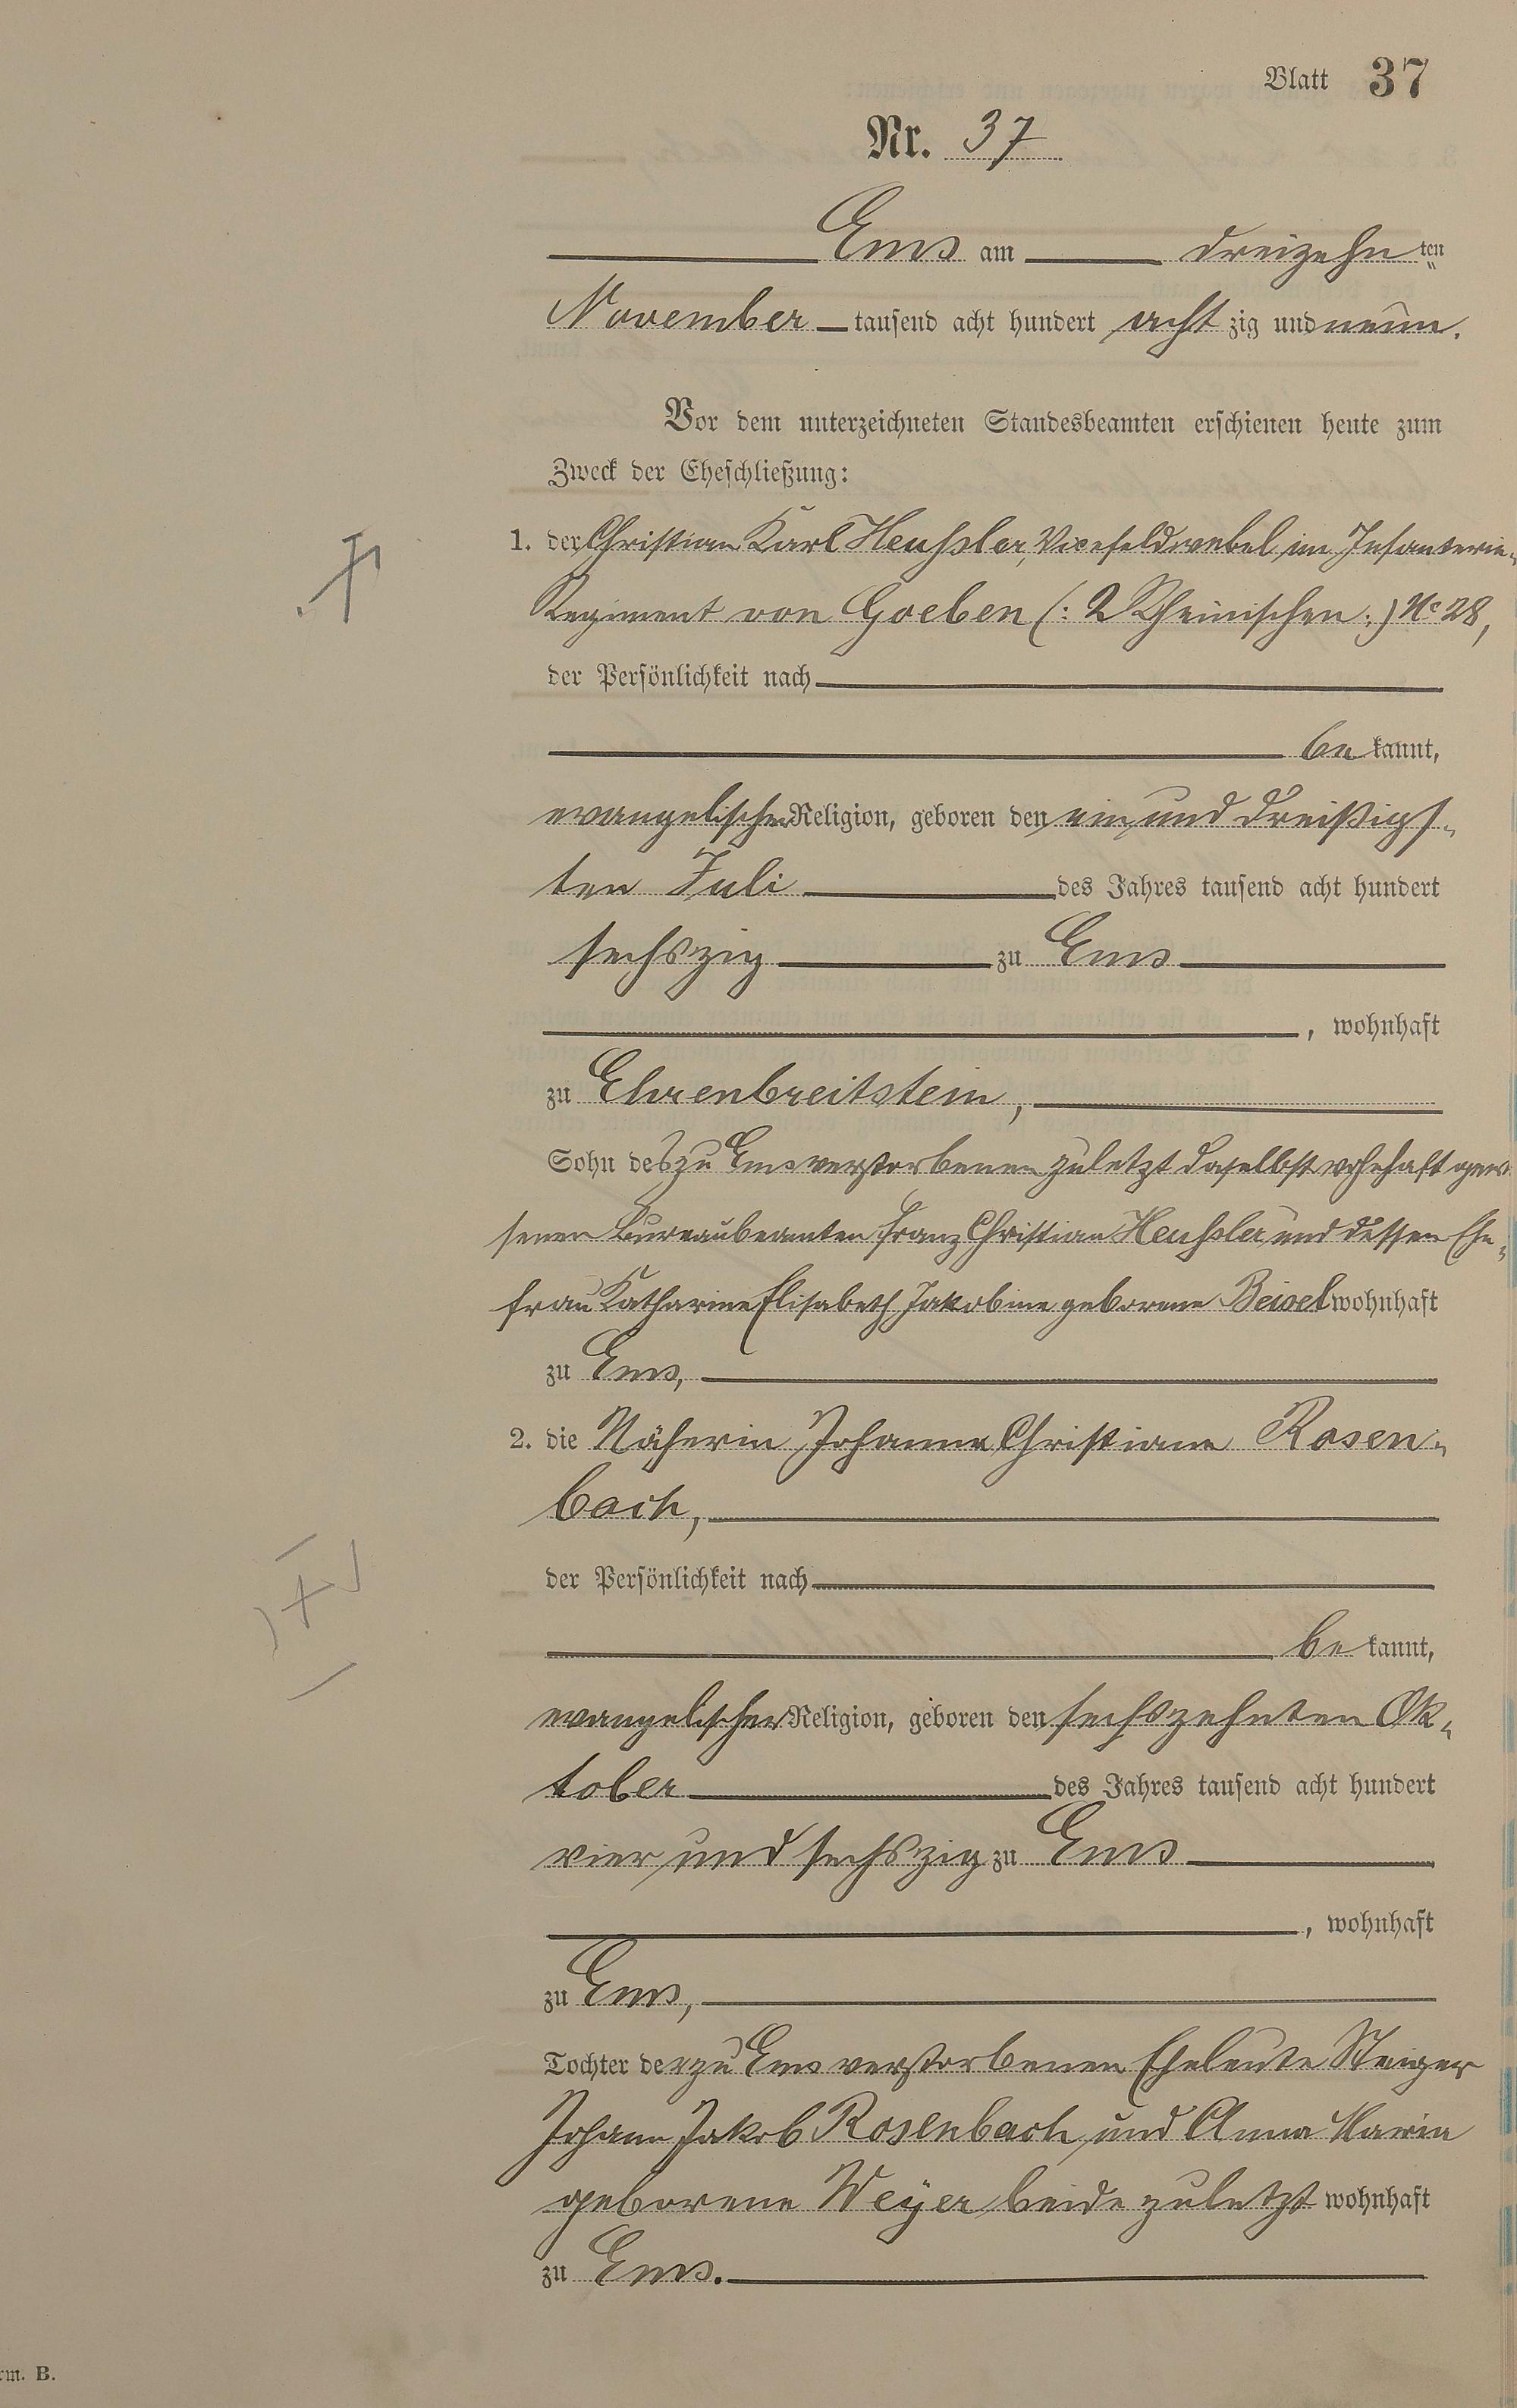 Blatt 37
Nr. 37
Ems am dreizehnten
November tausend acht hundert achtzig und neun.
Vor dem unterzeichneten Standesbeamten erschienen heute zum
Zweck der Eheschließung:
1. der Christian Karl Heußler, Vicefeldwebel im Infanterie-
Regiment von Goeben (: 2 Rheinischen :) No 28,
der Persönlichkeit nach
be kannt,
evangelischer Religion, geboren den ein und dreißigs-
ten Juli des Jahres tausend acht hundert
sechszig zu Ems
, wohnhaft
zu Ehrenbreitstein,
Sohn des zu Ems verstorbenen zuletzt daselbst wohnhaft gewe
senen Bureaubeamten Franz Christian Heußler und dessen Ehe-
frau Katharine Elisabeth Jakobine geborene Beisel wohnhaft
zu Ems,
2. die Näherin Johanna Christiane Rosen-
bach,
der Persönlichkeit nach
be kannt,
evangelischer Religion, geboren den sechszehnten Ok-
tober des Jahres tausend acht hundert
vier und sechszig zu Ems
, wohnhaft
zu Ems,
Tochter der zu Ems verstorbenen Eheleute Steiger
Johann Jakob Rosenbach und Anna Maria
geborene Weyer beide zuletzt wohnhaft
zu Ems.
rm. B.